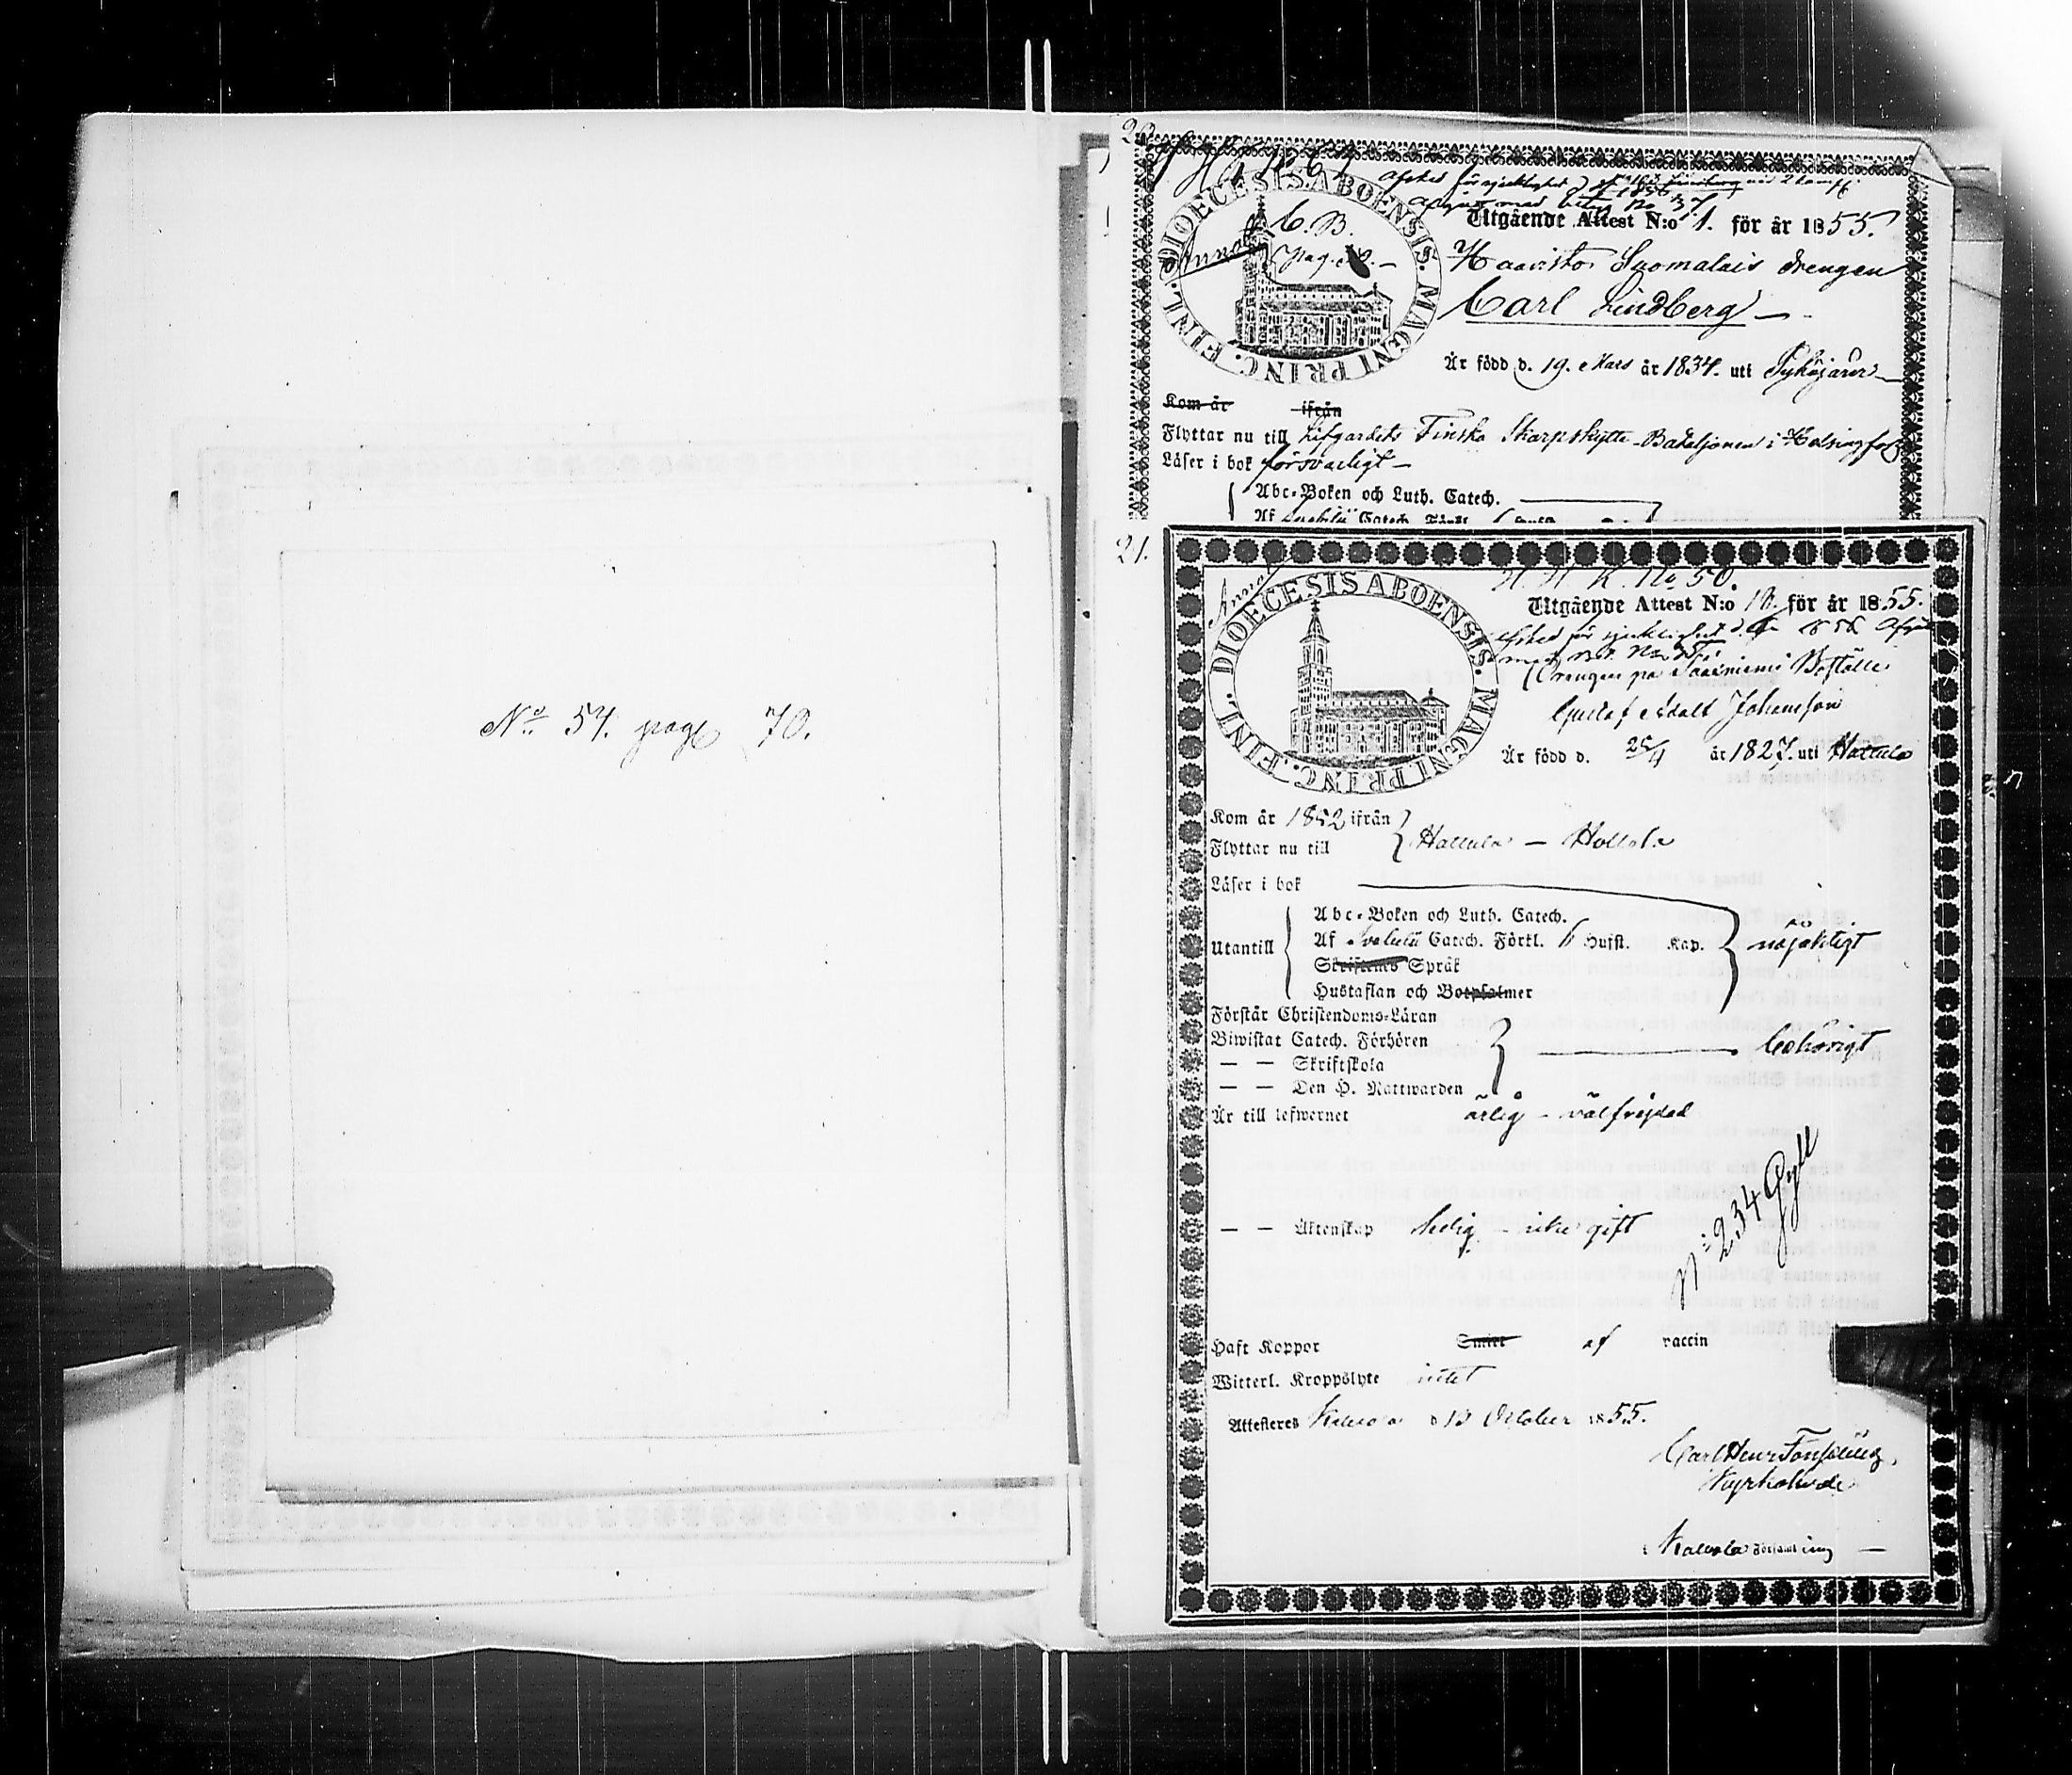 No 54. pag 70.
20
DIOECESIS ABOENSIS. MAGNI PRINC. FINL.
C. B.
pag.
Annot
Utgående Attest N:o 1. för år 1855.
Haavisto Suomalais drengen
Carl Lindberg
Är född d. 19. Mars år 1834. uti
Kom år ifrån
Flyttar nu till Lifgardets Finska Skarpskytte-Bataljonen i Helsingfors
Läser i bok försvarligt
Abc-Boken och Luth. Catech.
Af Svebilii Catech.
21.
Annot
DIOECESIS ABOENSIS. MAGNI PRINC. FINL.
H. H. K. No 50.
Utgående Attest N:o 18. för år 1855.
Drengen på Saarniemi Boställe
Gustaf Adolf Johansson
Är född d. 25/4 år 1827. uti Hattula
Kom år 1852 ifrån
Flyttar nu till
Hattula — Hollola
Läser i bok
Abc-Boken och Luth. Catech.
Utantill Af Svebilii Catech. Förkl. Husfl. Kap. nöjaktigt
Skriftens Språk
Hustaflan och Botpsalmer
Förstår Christendoms-Läran
Biwistat Catech. Förhören behörigt
— — Skriftskola
— — Den H. Nattwarden
Är till lefwernet ärlig — välfrejdad
N: 234 Gyll
— — Äktenskap ledig — icke gift
Haft Koppor Smitt af vaccin
Witterl. Kroppslyte intet
Attesteras Kalvola d 13 October 1855.
Carl Henr Fonselius,
Kyrkoherde
Kalvola Församling